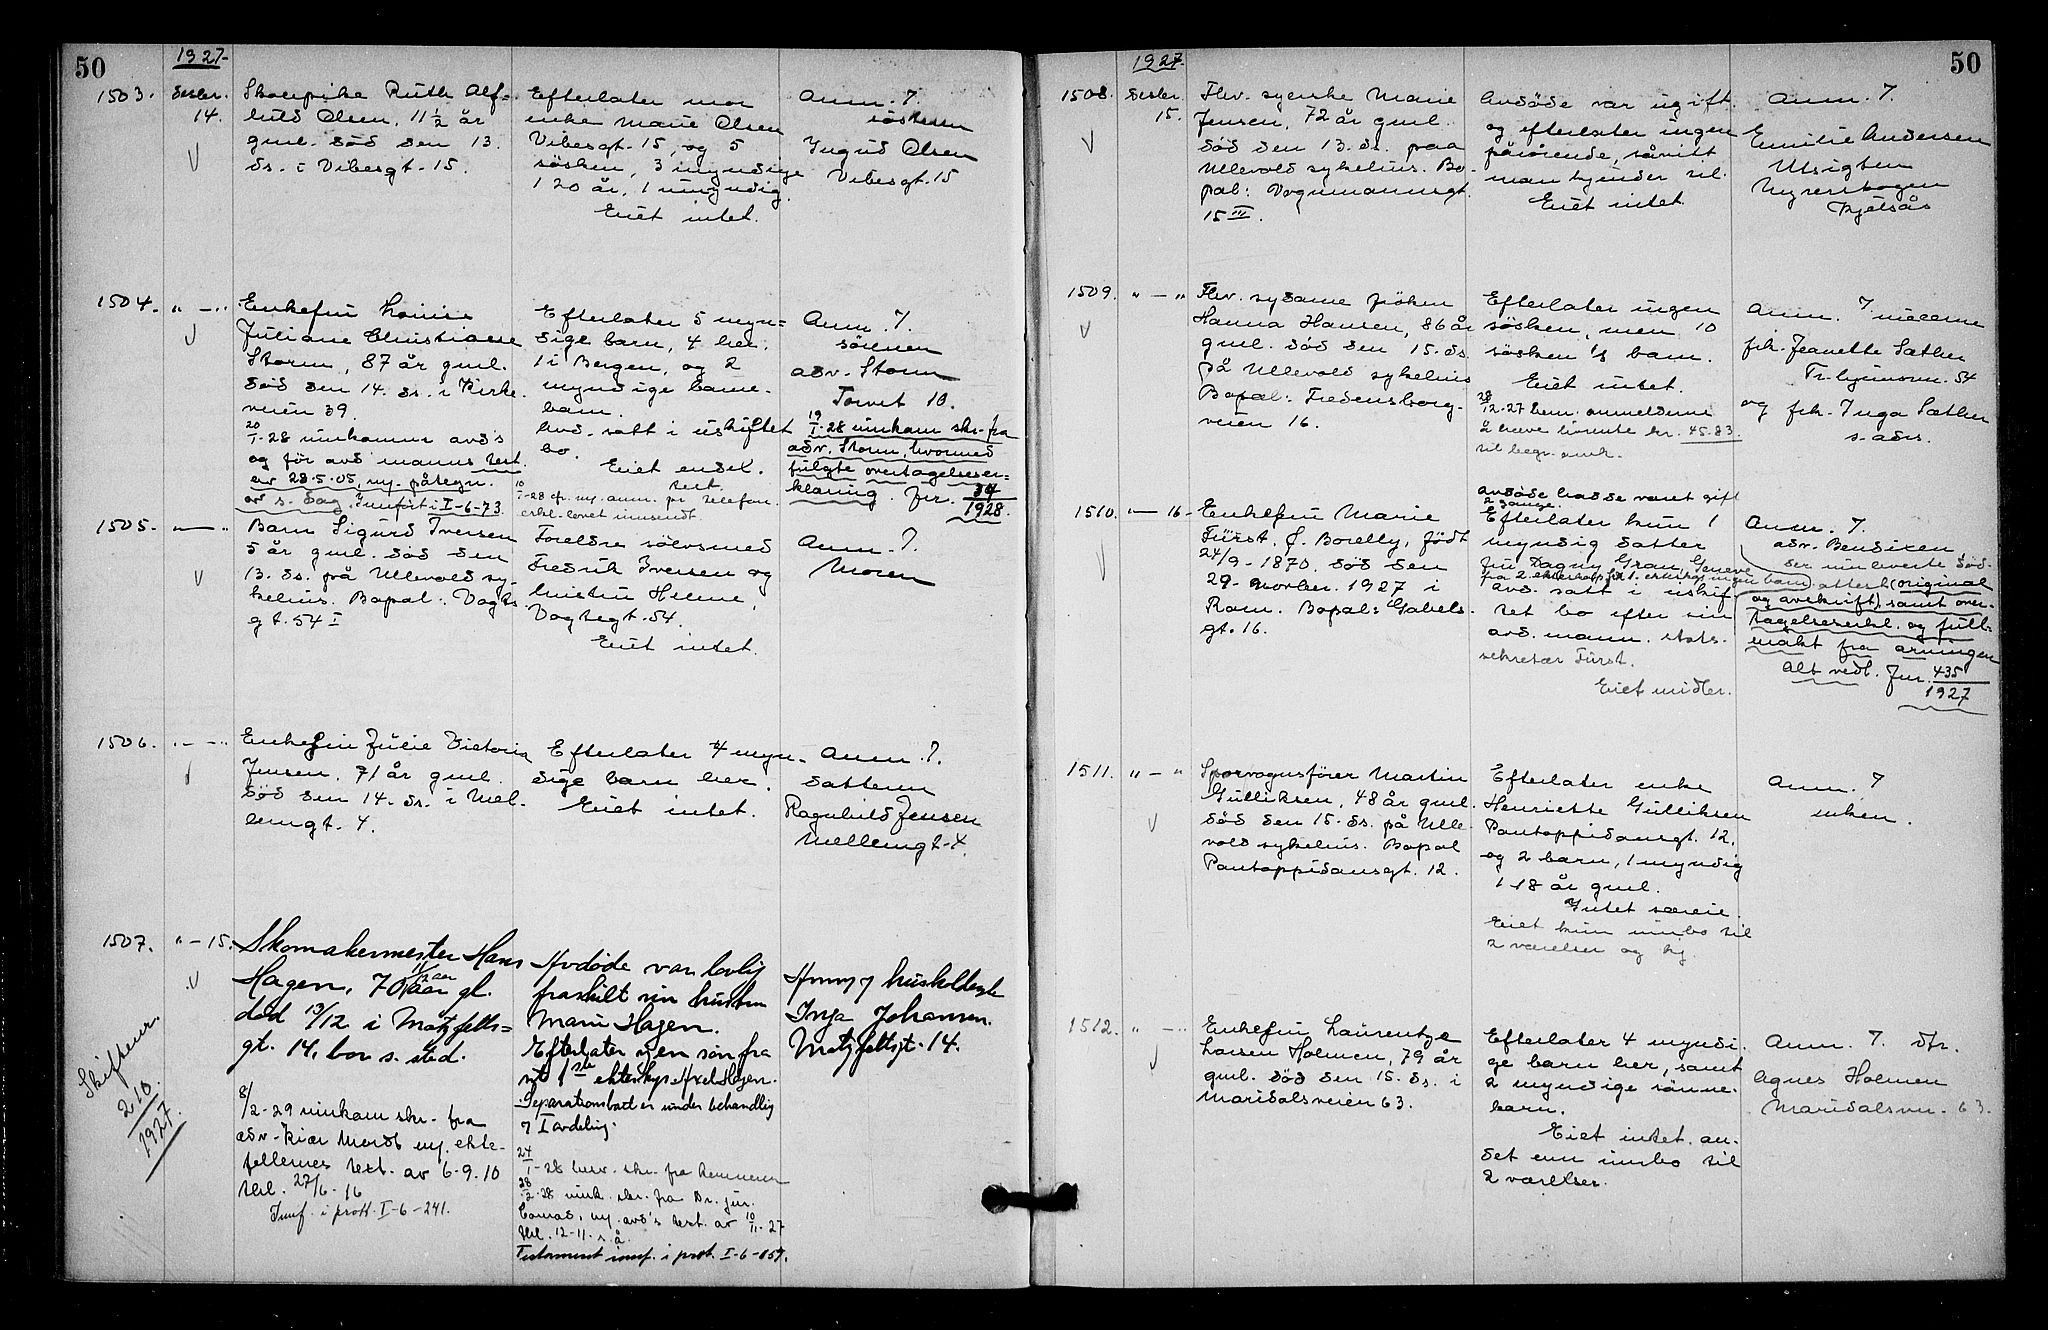 50
1927.
1503.
Desbr.
14.
Skolepike Ruth Alf-
hild Olsen, 11 1/2 år
gml. död den 13.
ds. i Vibesgt. 15.
Efterlater mor
enke Marie Olsen
Vibesgt. 15, og 5
søsken, 3 myndige
1 20 år, 1 umyndig.
Eiet intet.
Anm. 7.
søsteren
Ingrid Olsen
Vibesgt. 15
1504.
" — "
Enkefru Louise
Juliane Christiane
Storm, 87 år gml.
död den 14. ds. i Kirke-
veien 39.
20/1-28 innkommer avd's
og før avd manns test.
av 28-5-05, m. påtegn.
av s. dag. Innført i I-6-73.
Efterlater 5 myn-
dige barn, 4 her,
1 i Bergen, og 2
myndige barne-
barn.
Avd. satt i uskiftet
bo.
Eiet endel.
Test.
10/1-28 av. m. anm. pr telefon.
erkl. lovet innsendt
Anm. 7.
sönnen
adv. Storm
Torvet 10.
19/1-28 innkom skr. fra
adv. Storm, hvormed
fulgte overtagelseser-
klæring. Jnr. 34/1928.
1505.
" — "
Barn Sigurd Iversen
5 år gml. död den
13. ds. på Ullevold sy-
kehus. Bopal: Vogts
gt. 54 I
Foreldre sölvsmed
Fredrik Iversen og
hustru Helene,
Vogtsgt. 54.
Eiet intet.
Anm. 7.
Moren
1506.
" — "
Enkefru Julie Victoria
Jensen, 71 år gml.
död den 14. ds. i Mel-
lemgt. 4.
Efterlater 4 myn-
dige barn her.
Eiet intet.
Anm. 7.
datteren
Ragnhild Jensen
Mellemgt. 4.
1507.
" — 15.
Skomakermester Hans
Hagen, 70 aar gl.
död 13/12 i Motzfelts-
gt. 14, bor s. sted.
8/2-29 innkom skr. fra
adv. Kiær Mordt m. ekte-
fellernes test. av 6-9.10
27/6-16
Innf. i prot. I-6-241.
Skiftenr.
210/1927.
Avdöde var lovlig
fraskilt sin hustru
Marie Hagen.
Efterlater sig en sön fra
sit 1ste ekteskap Axel Hagen.
Separationsbodet er under behandling
7 I avdeling.
24/1-28 herv. skr. fra
28/2-28 innk. skr. fra Dr. jur.
m. avd's test. av 10/11-27
12-11- s. å.
Testament innf. i prot. I-6-
Anm. 7 husholderske
Inga Johansen.
Motzfeltsgt. 14.
1927.
50
1508.
Desbr.
15.
Fhv. syerske Marie
Jensen, 72 år gml.
död den 13. ds. paa
Ullevold sykehus. Bo-
pal: Vognmannsgt.
15 III.
Avdöde var ugift
og efterlater ingen
pårörende, såvitt
man kjender til.
Eiet intet.
Anm. 7.
Emilie Andersen
Utsigten
Myrerskogen
Kjelsås
1509.
" — "
Fhv. sydame fröken
Hanna Hansen, 86 år
gml. död den 15. ds.
på Ullevold sykehus
Bopal: Fredensborg-
veien 16.
Efterlater ingen
søsken, men 10
søsken's barn.
Eiet intet.
28/12-27 bem. anmelderne
å have hevet kr. 45.83.
til begr. omk.
Anm. 7 niecerne
frk. Jeanette Sæther
54
og frk. Inga Sæther
s. adrs.
1510.
" — 16 —
Enkefru Marie
Fürst, f. Borelly, födt
24/9-1870. död den
29. novbr. 1927 i
Rom. Bopal: Gabels-
gt. 16.
Avdöde hadde været gift
2 gange.
Efterlater kun 1
myndig datter
fru Dagny Gran, Geneve
fra 2. ekteskap, fra 1. ekteskap ingen barn
avd. satt i uskif-
tet bo efter sin
avd. mann, stats-
sekretær Fürst.
Eiet midler.
Anm. 7.
adv. Bendixen
der innleverte död-
attest (original
og avskrift) samt over-
tagelseserkl. og full-
makt fra arvingen
Alt vedl. Jnr. 435/1927
1511.
" — "
Sporvognsförer Martin
Gulliksen, 48 år gml.
död den 15. ds. på Ulle-
vold sykehus. Bopal
Pontoppidansgt. 12.
Efterlater enke
Henriette Gulliksen
Pontoppidansgt. 12.
og 2 barn, 1 myndig
1 18 år gml.
Intet særeie.
Eiet kun innbo til
2 værelser og kj.
Anm. 7
enken.
1512.
" — "
Enkefru Laurentze
Larsen Holmen, 79 år
gml. död den 15. ds. i
Maridalsveien 63.
Efterlater 4 myndi-
ge barn her, samt
2 myndige sönne-
barn.
Eiet intet an-
det enn innbo til
2 værelser.
Anm. 7. dtr.
Agnes Holmen
Maridalsvn. 63.